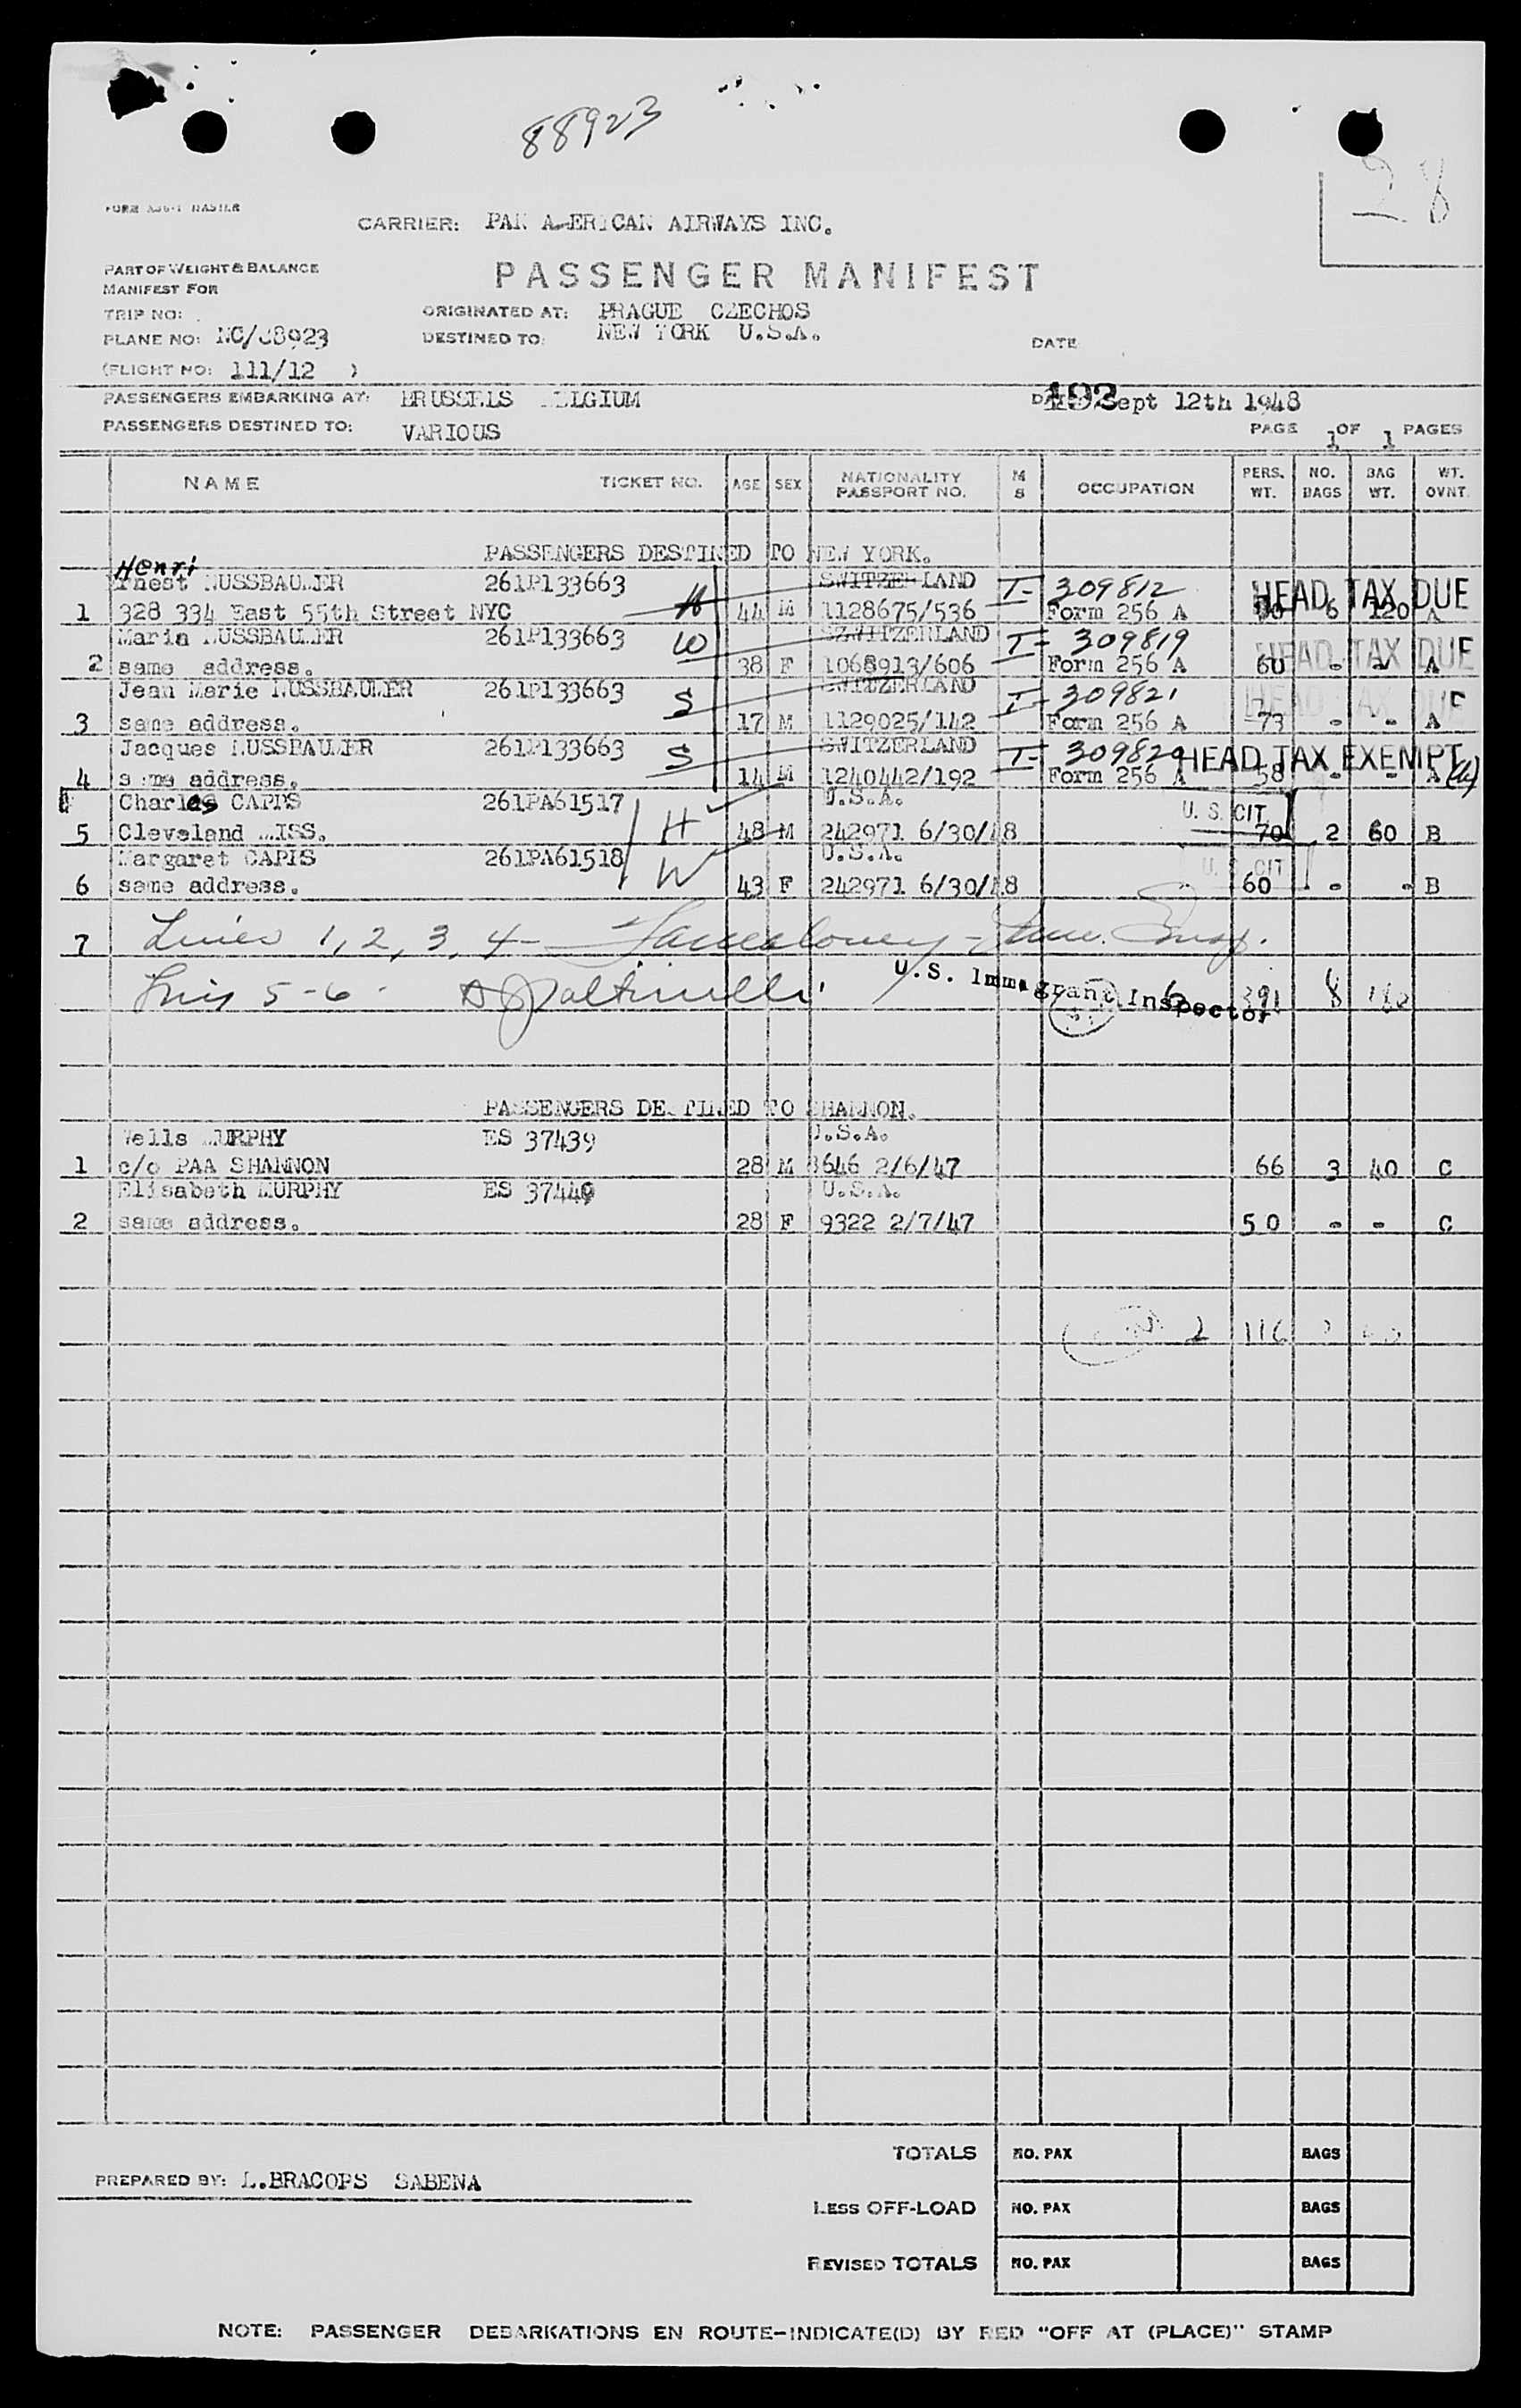 88923
28
CARRIER: PAN AMERICAN AIRWAYS INC.
PART OF WEIGHT & BALANCE
MANIFEST FOR
PASSENGER MANIFEST
TRIP NO:
ORIGINATED AT: PRAGUE CZECHOS
PLANE NO: NC/88923
DESTINED TO: NEW YORK U.S.A.
DATE
(FLIGHT NO: 111/12 )
PASSENGERS EMBARKING AT: BRUSSELS BELGIUM
492 Sept 12th 1948
PASSENGERS DESTINED TO: VARIOUS
PAGE 1 OF 1 PAGES
NAME TICKET NO. AGE SEX NATIONALITY PASSPORT NO. M S OCCUPATION PERS. WT. NO. BAGS BAG WT. WT. OVNT.
PASSENGERS DESTINED TO NEW YORK.
Henri
Ernest NUSSBAUMER 261P133663 SWITZERLAND T- 309812 HEAD TAX DUE
1 328 334 East 55th Street NYC H 44 M 1128675/536 Form 256 A 6 120 A
Maria NUSSBAUMER 261P133663 W SZWITZERLAND T- 309819 HEAD TAX DUE
2 same address. 38 F 1068913/606 Form 256 A 60 - - A
Jean Marie NUSSBAUMER 261P133663 S SWITZERLAND T- 309821 HEAD TAX DUE
3 same address. 17 M 1129025/142 Form 256 A 73 - - A
Jacques NUSSBAUMER 261P133663 S SWITZERLAND T- 309820 HEAD TAX EXEMPT
4 same address. 14 M 1240442/192 Form 256 A 58 - - A (4)
Charles CAPIS 261PA61517 H U.S.A. U.S. CIT
5 Cleveland MISS. 48 M 242971 6/30/48 70 2 60 B
Margaret CAPIS 261PA61518 W U.S.A. U.S. CIT
6 same address. 43 F 242971 6/30/48 60 - - B
7 Lines 1, 2, 3, 4 -
5-6
U.S. Immigrant Inspector
6 391 8 180
PASSENGERS DESTINED TO SHANNON.
Wells MURPHY ES 37439 U.S.A.
1 c/o PAA SHANNON 28 M 8646 2/6/47 66 3 40 C
Elisabeth MURPHY ES 37440 U.S.A.
2 same address. 28 F 9322 2/7/47 50 - - C
2 116
TOTALS NO. PAX BAGS
PREPARED BY: L.BRACOPS SABENA
LESS OFF-LOAD NO. PAX BAGS
REVISED TOTALS NO. PAX BAGS
NOTE: PASSENGER DEBARKATIONS EN ROUTE-INDICATE(D) BY RED "OFF AT (PLACE)" STAMP